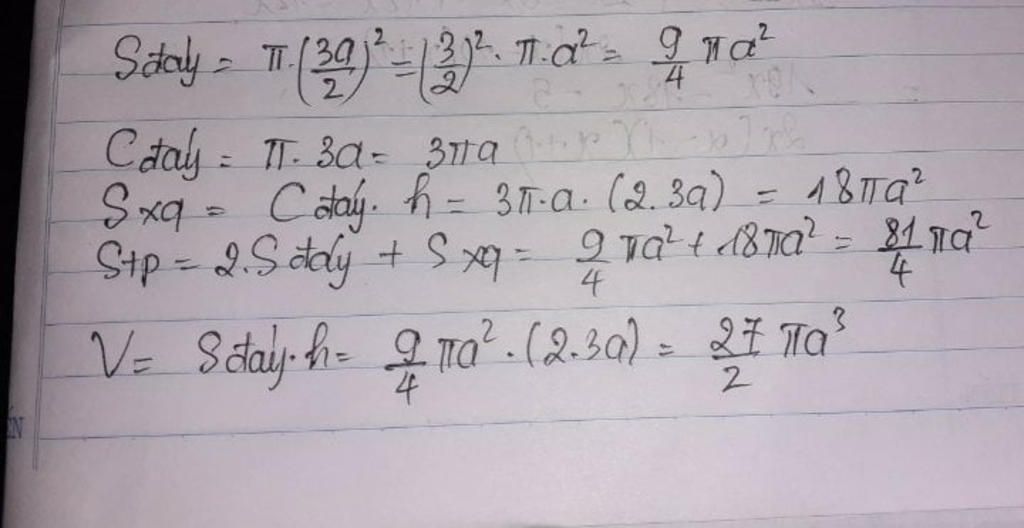 Sđáy = π.(3a/2)² = (3/2)². π.a² = 9/4 πa²
Cđáy = π. 3a = 3πa
Sxq = Cđáy. h = 3π.a. (2.3a) = 18πa²
Stp = 2.Sđáy + Sxq = 9/4 πa² + 18πa² = 81/4 πa²
V = Sđáy.h = 9/4 πa² . (2.3a) = 27/2 πa³